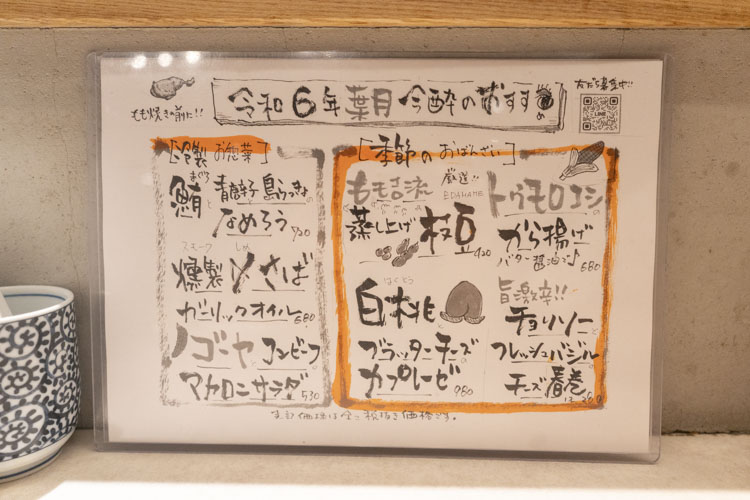 令和6年葉月 今酔のおすすめ
もも焼きの前に!!
友だち募集中!!
LINE
[冷製 お惣菜]
まぐろ
鮪と青唐辛子島らっきょの
なめろう 720
スモーク しめ
燻製〆さば
ガーリックオイル 680
ゴーヤコンビーフ
マカロニサラダ 530
[季節のおばんざい]
もも吉流
厳選!!
EDAMAME
蒸し上げ枝豆 420
はくとう
白桃と
ブラッターチーズの
カプレーゼ 980
トウモロコシの
から揚げ
バター醤油で♪ 680
旨激辛!!
チョリソーと
フレッシュバジルの
チーズ春巻
表記価格は全て税抜き価格です。